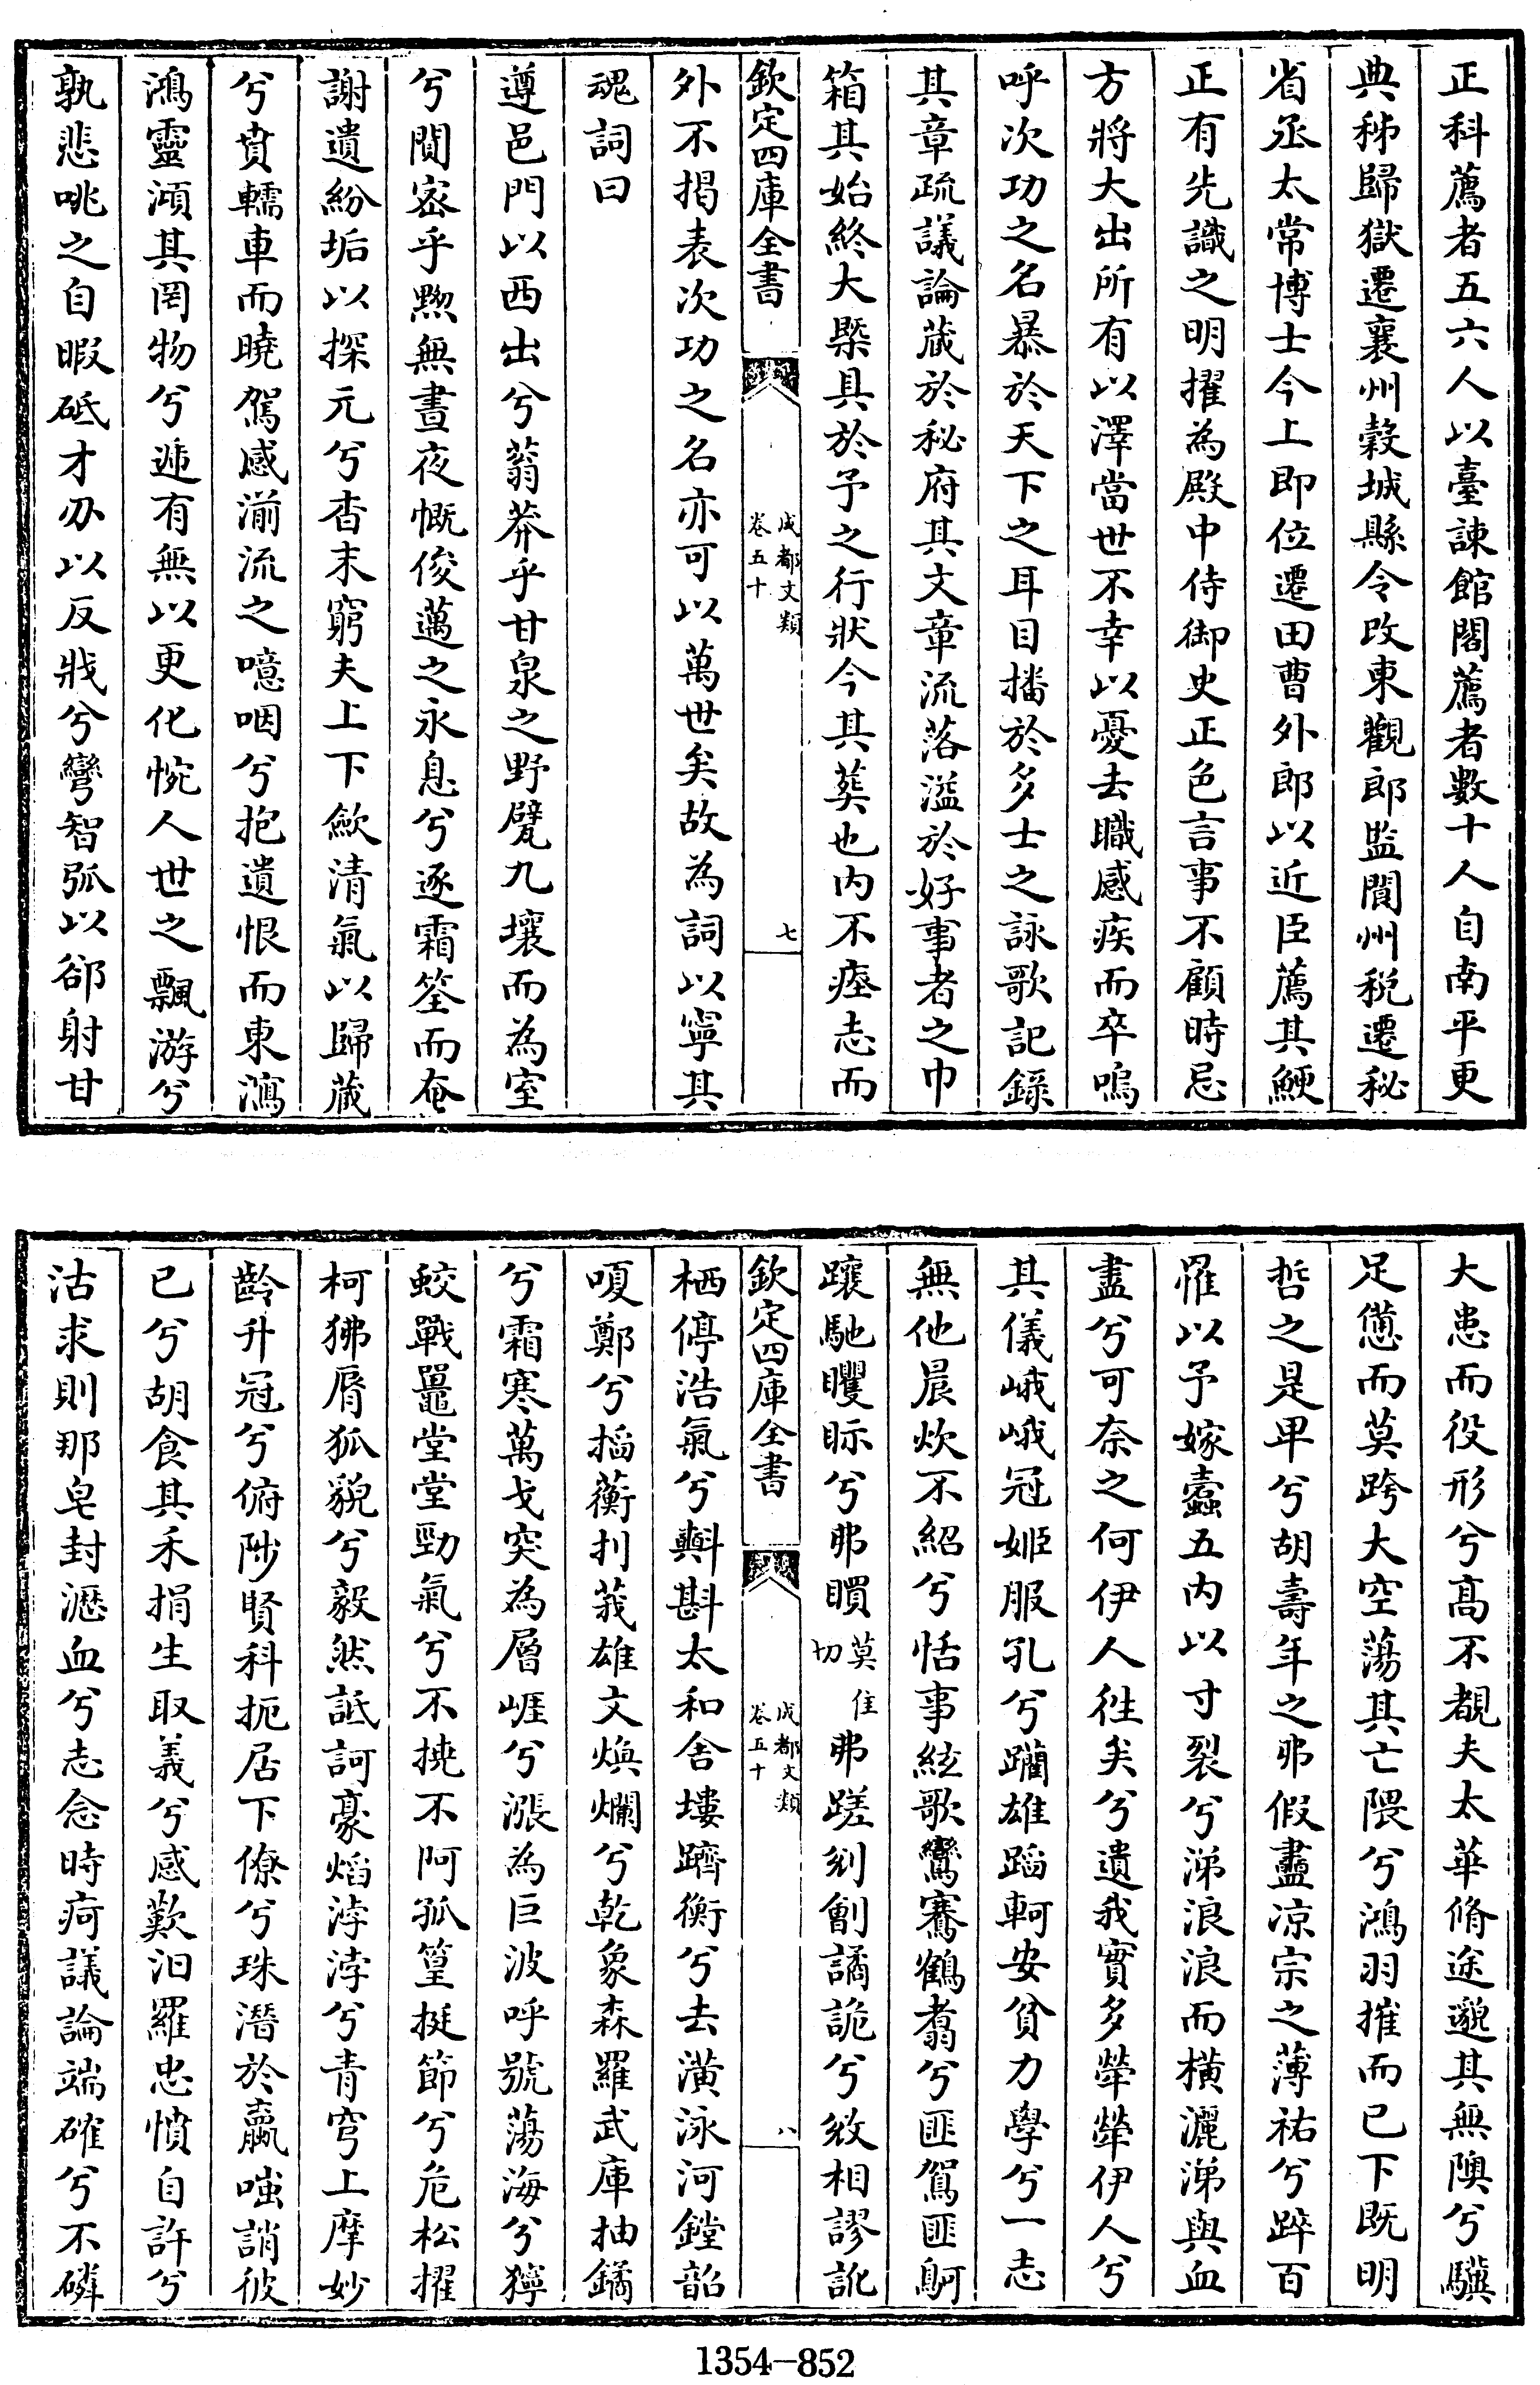 正科薦者五六人以臺諫館閣薦者數十人自南平更
典秭歸獄遷襄州穀城縣令改東觀郎監閬州税遷秘
省丞太常博士今上即位遷田曹外郎以近臣薦其鯁
正有先識之明擢為殿中侍御史正色言事不顧時忌
方將大出所有以澤當世不幸以憂去職感疾而卒嗚
呼次功之名暴於天下之耳目播於多士之詠歌記錄
其章疏議論蔵於秘府其文章流落溢於好事者之巾
箱其始終大槩具於予之行狀今其葬也内不瘞志而
欽定四庫全書
成都文類
卷五十
七
外不揭表次功之名亦可以萬世矣故為詞以寧其
魂詞曰
遵邑門以西出兮蓊莽乎甘泉之野甓九壤而為室
兮閴宻乎黙無晝夜慨俊邁之永息兮逐霜筌而奄
謝遺紛垢以探元兮杳末窮夫上下歛清氣以歸蔵
兮賁轜車而曉駕感湍流之噫咽兮抱遺恨而東瀉
鴻靈澒其罔物兮遞有無以更化惋人世之飄游兮
孰悲咷之自暇砥才刅以反戕兮彎智弧以郤射甘
大患而役形兮髙不覩夫太華脩途邈其無隩兮驥
足憊而莫跨大空蕩其亡隈兮鴻羽摧而已下既明
哲之是畀兮胡壽年之弗假盡凉宗之薄祐兮踤百
罹以予嫁蠹五内以寸裂兮涕浪浪而横灑涕與血
盡兮可奈之何伊人徃矣兮遺我實多犖犖伊人兮
其儀峨峨冠姬服孔兮躏雄蹈軻安貧力學兮一志
無他晨炊不紹兮恬事絃歌鸞騫鶴翥兮匪鴛匪鴚
蹂馳矍眎兮弗瞤莫住切弗蹉剡劊譎詭兮紋相謬訛
欽定四庫全書
成都文類
卷五十
八
栖停浩氣兮㪺斟太和舍塿躋衡兮去潢泳河鏜韶
嗄鄭兮搯蘅刋莪雄文煥爛兮乾象森羅武庫抽鐍
兮霜寒萬戈突為層崕兮漲為巨波呼號蕩海兮獰
蛟戰鼉堂堂勁氣兮不撓不阿孤篁挺節兮危松擢
柯狒脣狐貌兮毅然詆訶豪焰浡浡兮青穹上摩妙
齡升冠兮俯陟賢科扼居下僚兮珠潛於蠃嗤誚彼
已兮胡食其禾捐生取義兮感歎汨羅忠憤自許兮
沽求則那皂封瀝血兮志念時疴議論端確兮不磷
1354—852